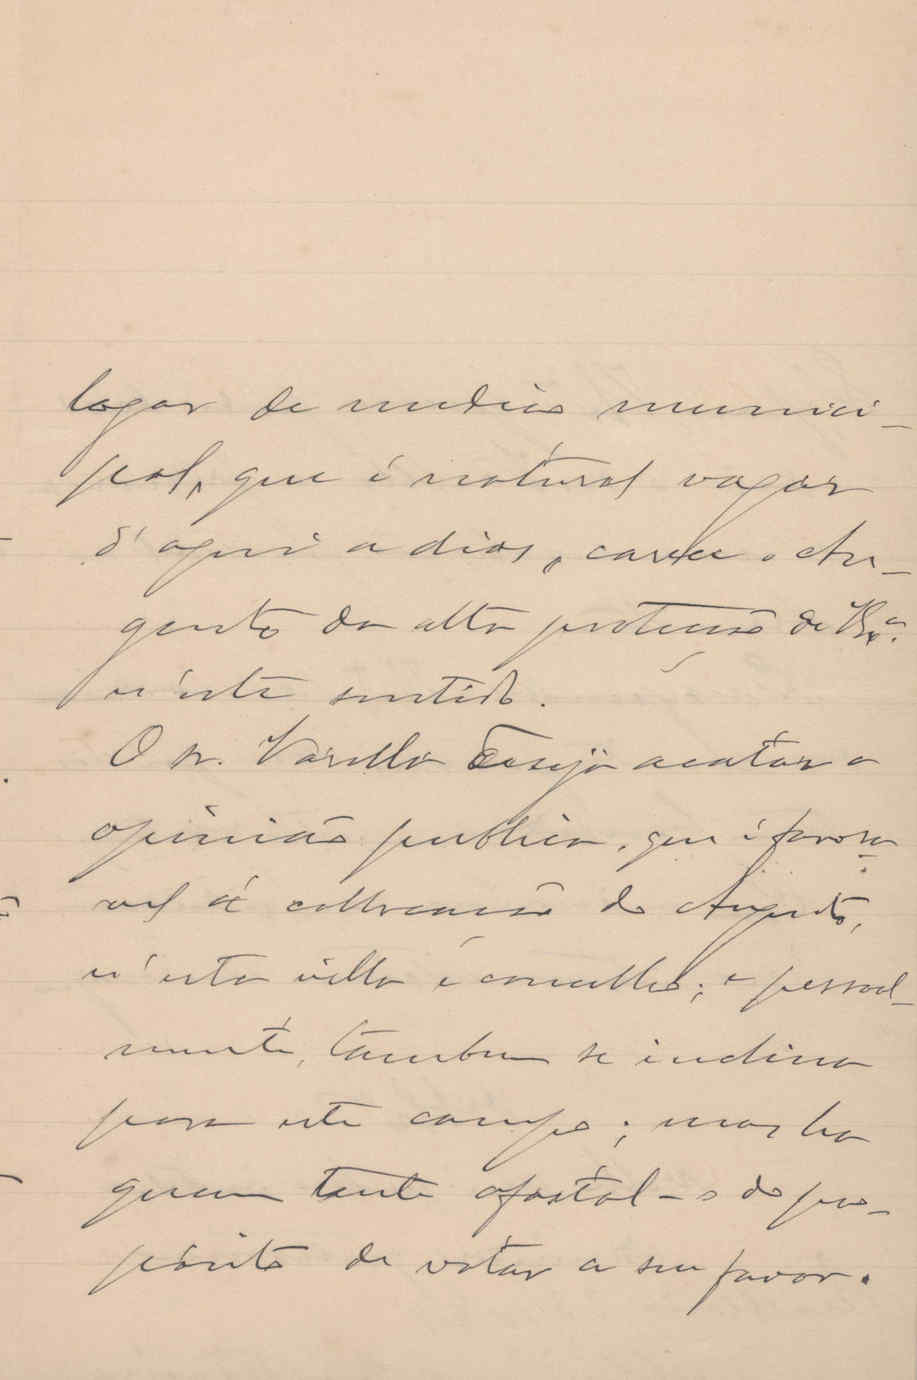 logar de medico munici-
pal, que é natural vagar
d'aqui a dias, carece o Au-
gusto da alta protecção de V. Ex.ª
n'este sentido.
O sr. Varella deseja acatar a
opinião publica, que é favora-
vel á collocação do Augusto,
n'esta villa e concelho; e pessoal-
mente, tambem se inclina
para este campo; mas ha
quem tente afastal-o do pro-
pósito de votar a seu favor.